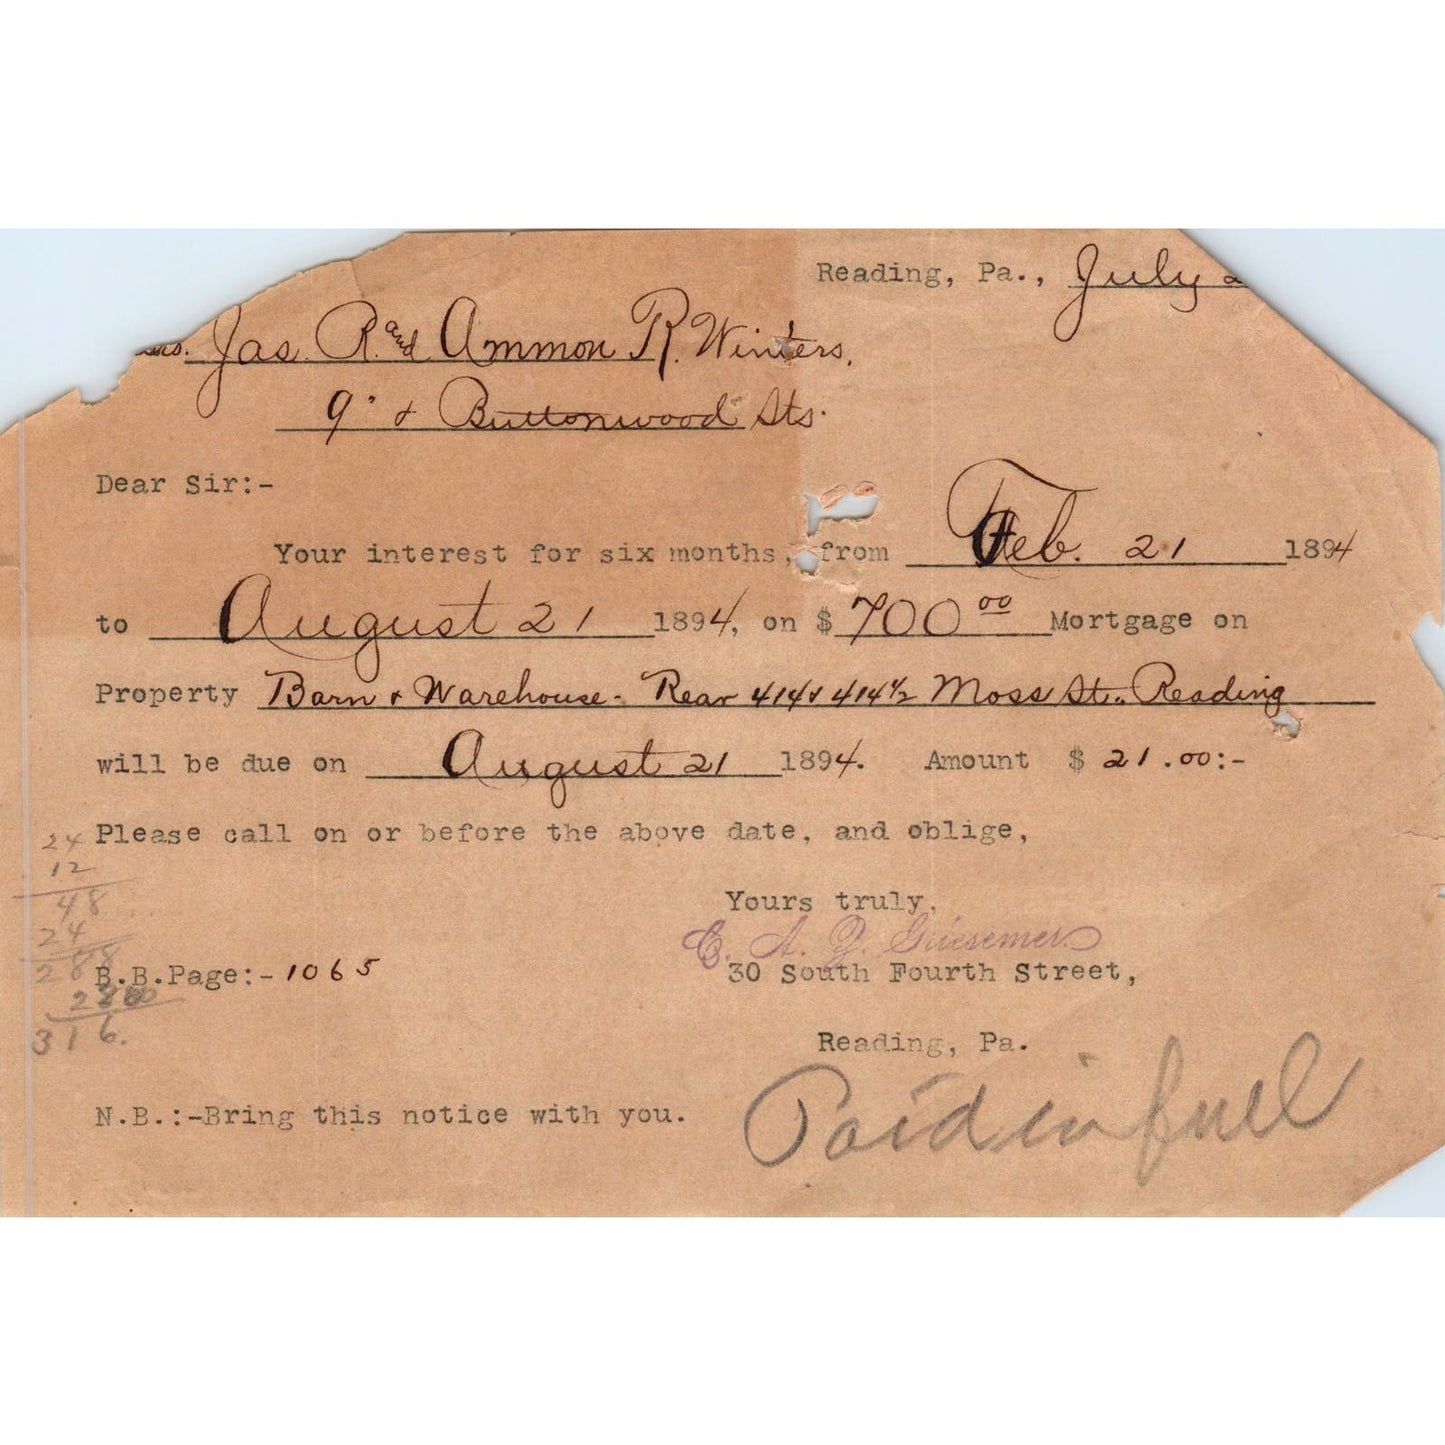 Reading, Pa., July 2
Jas. R. and Ammon R. Winters,
9" & Buttonwood Sts.
Dear Sir:-
Your interest for six months, from Feb. 21 1894
to August 21 1894, on $ 700 00 Mortgage on
Property Barn & Warehouse - Rear 414 & 414 1/2 Moss St., Reading
will be due on August 21 1894. Amount $ 21.00:-
Please call on or before the above date, and oblige,
24
12
48
24
288
316.
Yours truly,
E. A. Y. Griesemer
30 South Fourth Street,
B.B.Page:- 1065
Reading, Pa.
N.B.:-Bring this notice with you.
Paid in full